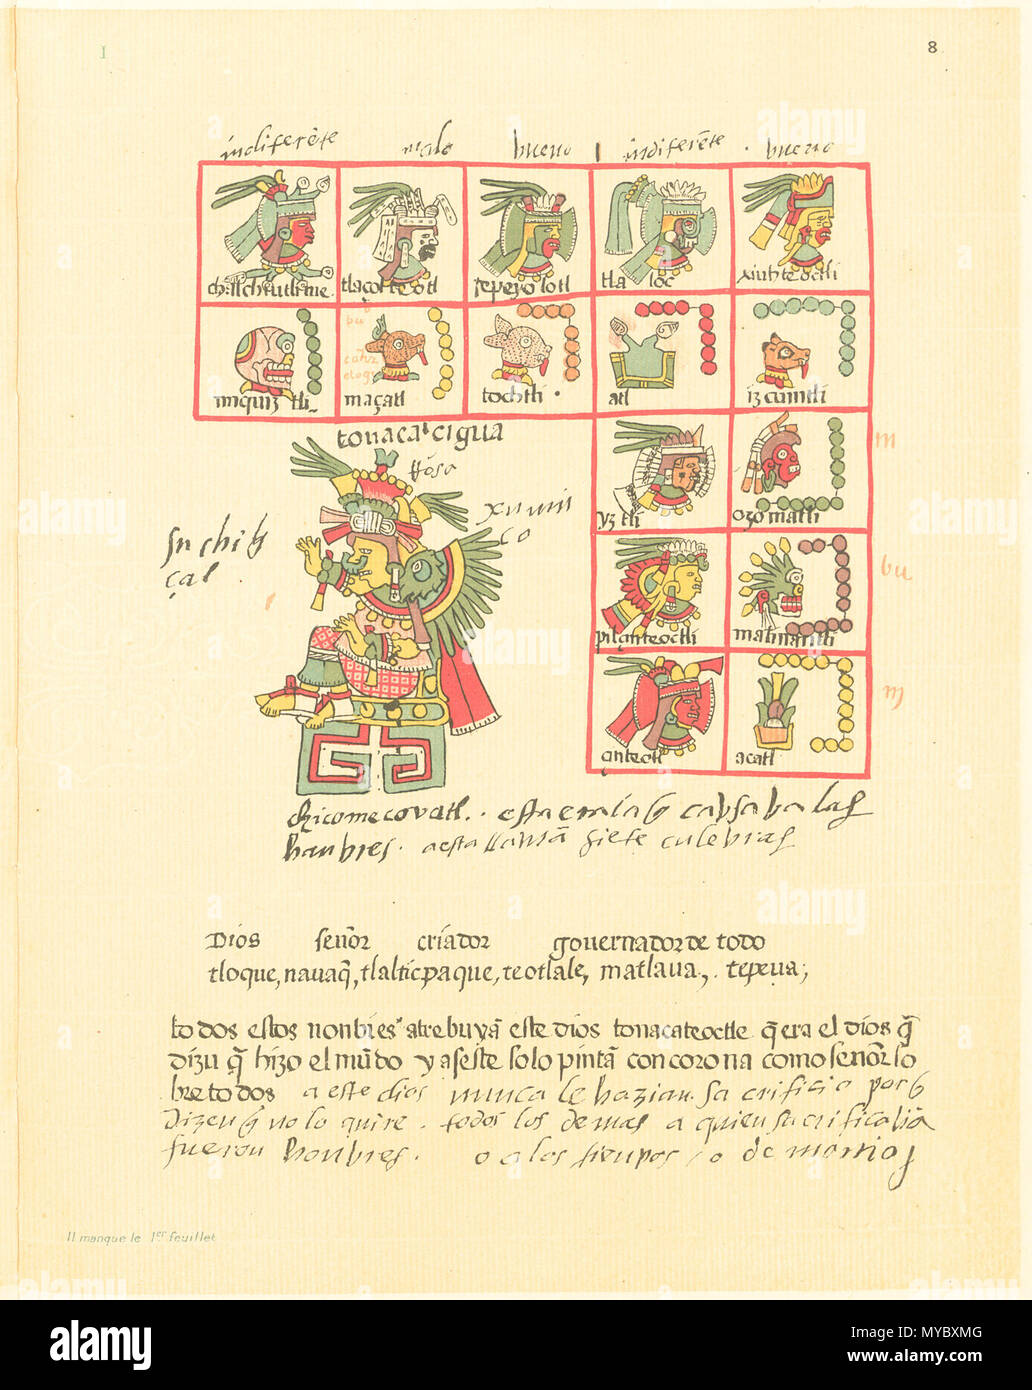 I
8
indiferẽte malo bueno indiferẽte . bueno
tlaçolteotl tepeyolotl tlaloc xiuhteoctli
miquiztli maçatl tochtli . atl izcuintli
bu
tonacaçigua
yztli oзomatli
m
suchiq̃
çal
bu
pilçinteoctli malinantli
m
çinteotl acatl
chicomecovatl . esta era la q̃ causaba las
hanbres . a esta llaman siete culebras
Dios señor criador governador de todo
tloque, nauaq̃, tlalticpaque, teotlale, matlaua, . tepeua,
todos estos nonbres atrebuyã este dios tonacateoctle q̃ era el dios q̃
dizẽ q̃ hizo el mũdo y a seste solo pintã con corona como señor so
bre todos a este dios nunca le hazian sacrificio porq̃
dizen q̃ no lo quire . todos los demas a quien sacrificabã
fueron honbres . o a los tienpos , o demonios
Il manque le 1er feuillet
alamy
Image ID: MYBXMG
www.alamy.com